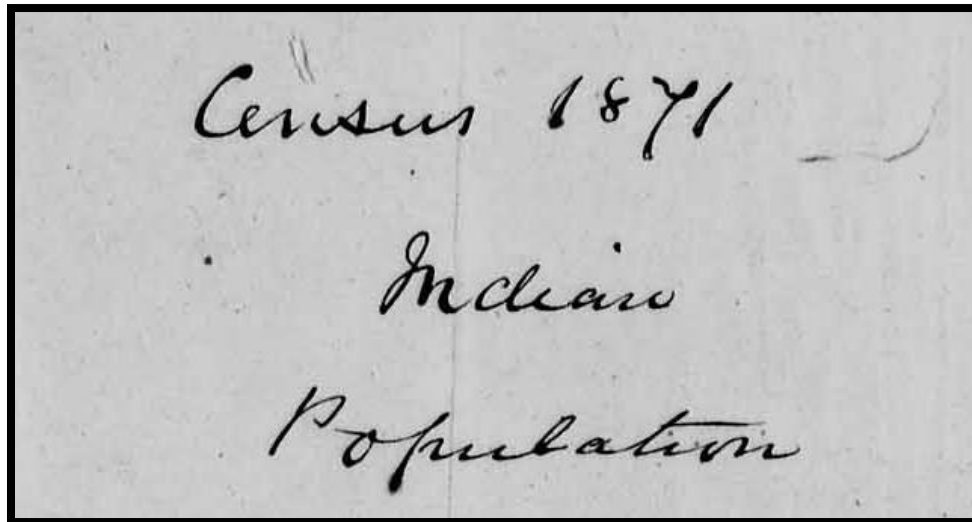 Census 1871
Indian
Population